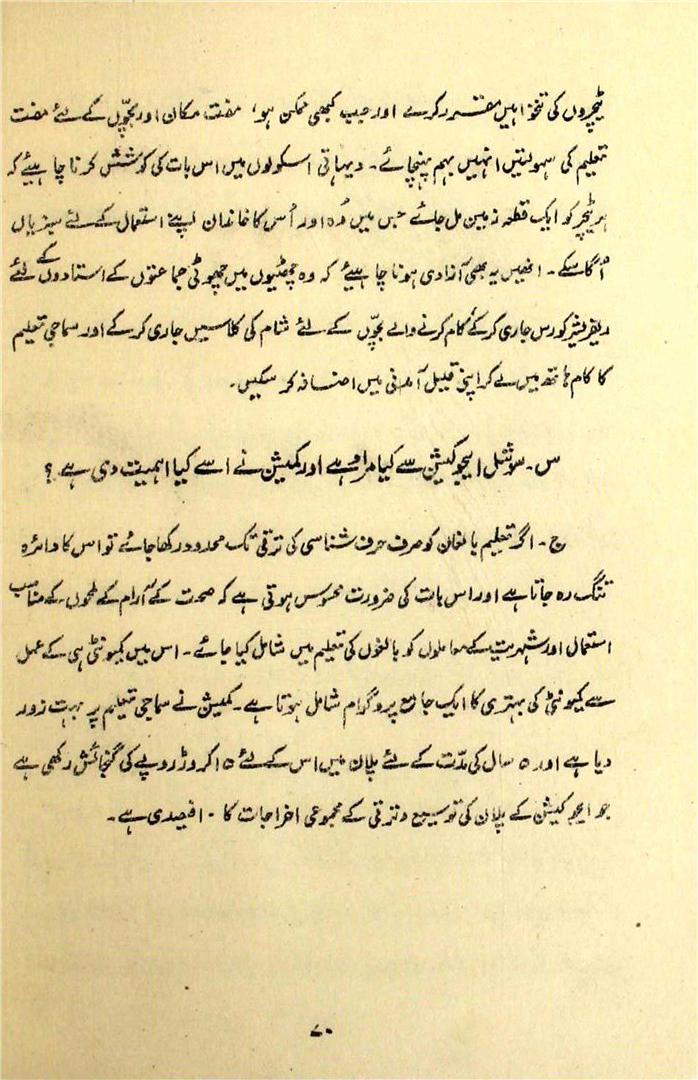 ٹیچروں کی تنخواہیں مقرر کرے اور جب کبھی ممکن ہو، مفت مکان اور بچّوں کے لئے مفت
تعلیم کی سہولتیں انہیں بہم پہنچائے۔ دیہاتی اسکولوں میں اس بات کی کوشش کرنا چاہیئے کہ
ہر ٹیچر کو ایک قطعہ زمین مل جائے جس میں وُہ اور اُس کا خاندان اپنے استعمال کے لئے سبزیاں
اُگا سکے۔ انھیں یہ بھی آزادی ہونا چاہیئے کہ وہ چھٹیوں میں چھوٹی جماعتوں کے استادوں کے لئے
ریفریشر کورس جاری کر کے کام کرنے والے بچّوں کے لئے شام کی کلاسیں جاری کر کے اور سماجی تعلیم
کا کام ہاتھ میں لے کر اپنی قلیل آمدنی میں اضافہ کر سکیں۔
س۔ سوشل ایجوکیشن سے کیا مراد ہے اور کمیشن نے اسے کیا اہمیت دی ہے ؟
ج۔ اگر تعلیم بالغان کو صرف حرف شناسی کی ترقی تک محدود رکھا جائے تو اس کا دائرہ
تنگ رہ جاتا ہے اور اس بات کی ضرورت محسوس ہوتی ہے کہ صحت کے آرام کے لمحوں۔ کے مناسب
استعمال اور شہریت کے معاملوں کو بالغوں کی تعلیم میں شامل کیا جائے۔ اس میں کمیونٹی ہی کے عمل
سے کمیونٹی کی بہتری کا ایک جامع پروگرام شامل ہوتا ہے۔ کمیشن نے سماجی تعلیم پر بہت زور
دیا ہے اور ۵ سال کی مدّت کے لئے پلان میں اس کے لئے ۱۵ کروڑ روپے کی گنجائش رکھی ہے
جو ایجوکیشن کے پلان کی توسیع و ترقی کے مجموعی اخراجات کا ۱۰ فیصدی ہے۔
۷۰